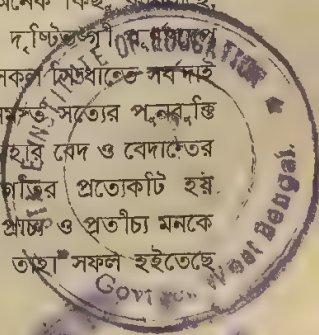 অনেক কিছু
দৃষ্টিভঙ্গী
সকল সিদ্ধান্তে সর্বদাই
সত্যের পুনরুক্তি
বেদ ও বেদান্তের
প্রত্যেকটি হয়
প্রাচ্য ও প্রতীচ্য মনকে
তাহা সফল হইতেছে
INSTITUTE OF EDUCATION
Govt West Bengal